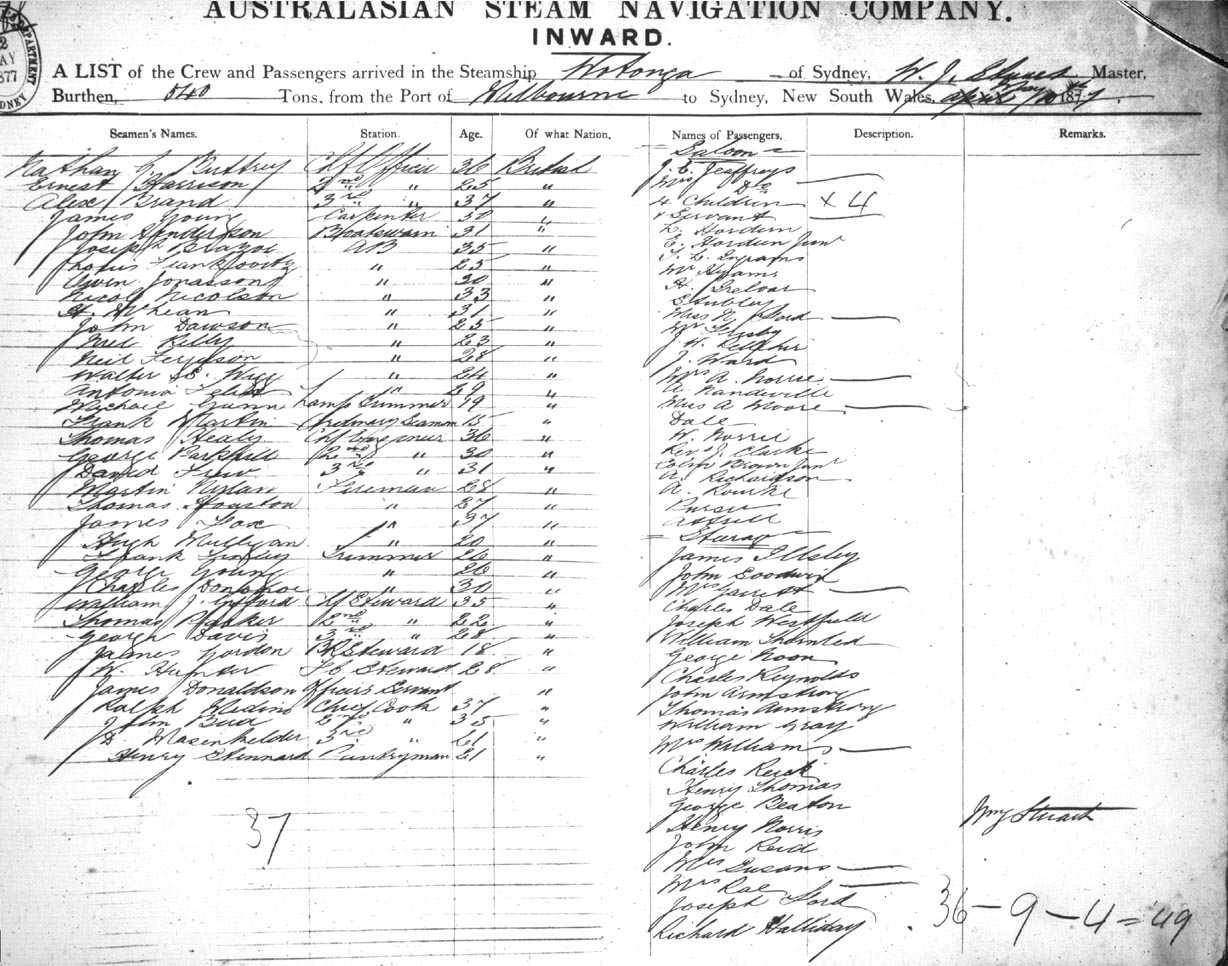 AUSTRALASIAN STEAM NAVIGATION COMPANY.
INWARD.
A LIST of the Crew and Passengers arrived in the Steamship Wotonga of Sydney, W. J. Master,
Burthen, 540 Tons, from the Port of Melbourne to Sydney, New South Wales, 187
Seamen's Names. Station. Age. Of what Nation. Names of Passengers. Description. Remarks.
Nathan Buttrey Chf Officer 36 British
Ernest Harrison 2nd " 25 "
Alex Brand 3rd " 37 "
James Young Carpenter 50 "
John Henderson Boatswain 31 "
Joseph AB 35 "
" 25 "
Owen Jonasson " 30 "
Nicol Nicolson " 33 "
McLean " 31 "
John Dawson " 25 "
Kelly " 23 "
Neil Ferguson " 28 "
Walter " 24 "
Antonio " 29 "
Michael Gunn Lamp Trimmer 19 "
Frank Martin Ordinary Seaman 15 "
Thomas Healy Chf Engineer 36 "
George Parkhill 2nd " 30 "
David Frew 3rd " 31 "
Martin Nylan Fireman 28 "
Thomas Houston " 27 "
James Fox " 37 "
Hugh Mulligan " 20 "
Frank Trimmer 26 "
George Young " 26 "
Charles Donahoe " 30 "
William J. Gifford Chf Steward 35 "
Thomas Parker 2nd " 22 "
George Davis 3rd " 28 "
James Gordon BR Steward 18 "
W. Hunter F C Steward 28 "
James Donaldson Officers Servant "
Ralph Medins Chief Cook 37 "
John Bird 2nd " 35 "
D Masenhelder 3rd " 21 "
Henry Stennard Pantryman 21 "
37
Saloon
J. E. Jeffreys
Mrs Do
4 Children x 4
& Servant
L. Hordern
E. Hordern Junr
T. L. Ingrams
Mr Hyams
H. Treloar
Stubley
Miss N. Ford
W.
J. Ward
Mrs A. Norrie
A. Mandeville
Miss A Moore
Dale
W. Norrie
Revd J. Clarke
Colin Brown Junr
A. Richardson
A. Rourke
Purser
Steerage
James Illsley
John Goodwin
Mrs Garrett
Charles Dale
Joseph Westfield
William Thornted
George Noon
Charles Reynolds
John Armstrong
Thomas Armstrong
William Gray
Mrs Williams
Charles Reick
Henry Thomas
George Beaton
Henry Norris
John Reid
Mrs Susans
Mrs Rae
Joseph Ford
Richard Halliday
Wm Stuart
36 - 9 - 4 = 49